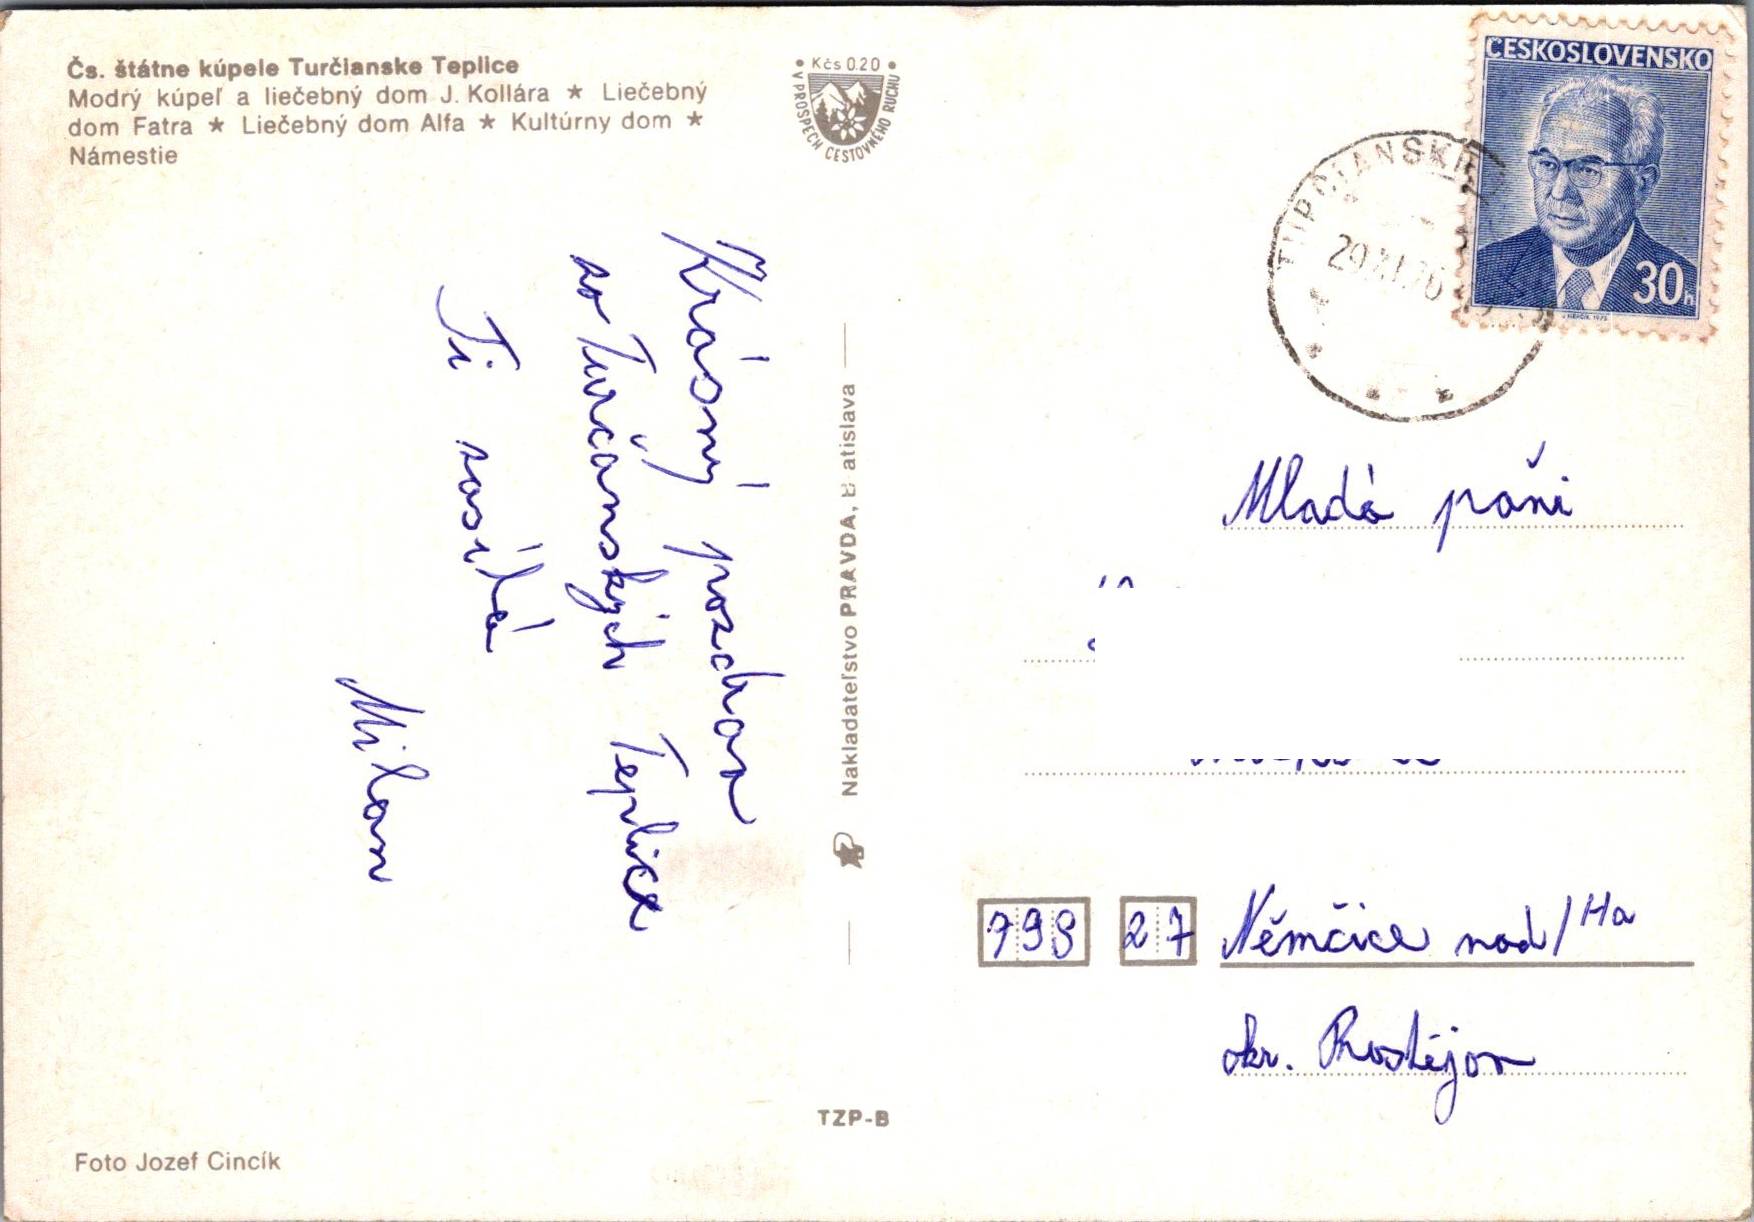 Čs. štátne kúpele Turčianske Teplice
Modrý kúpeľ a liečebný dom J. Kollára ★ Liečebný
dom Fatra ★ Liečebný dom Alfa ★ Kultúrny dom ★
Námestie
• Kčs 0.20 •
V PROSPECH CESTOVNÉHO RUCHU
ČESKOSLOVENSKO
30h
TURČIANSKE
29.XI.76
Krásný pozdrav
zo Turčanských Teplice
Ti zasílá
Milan
Nakladateľstvo PRAVDA, B atislava
Mladá pańi
798 27 Němčice nad/Ha
okr. Prostějov
TZP-B
Foto Jozef Cincík